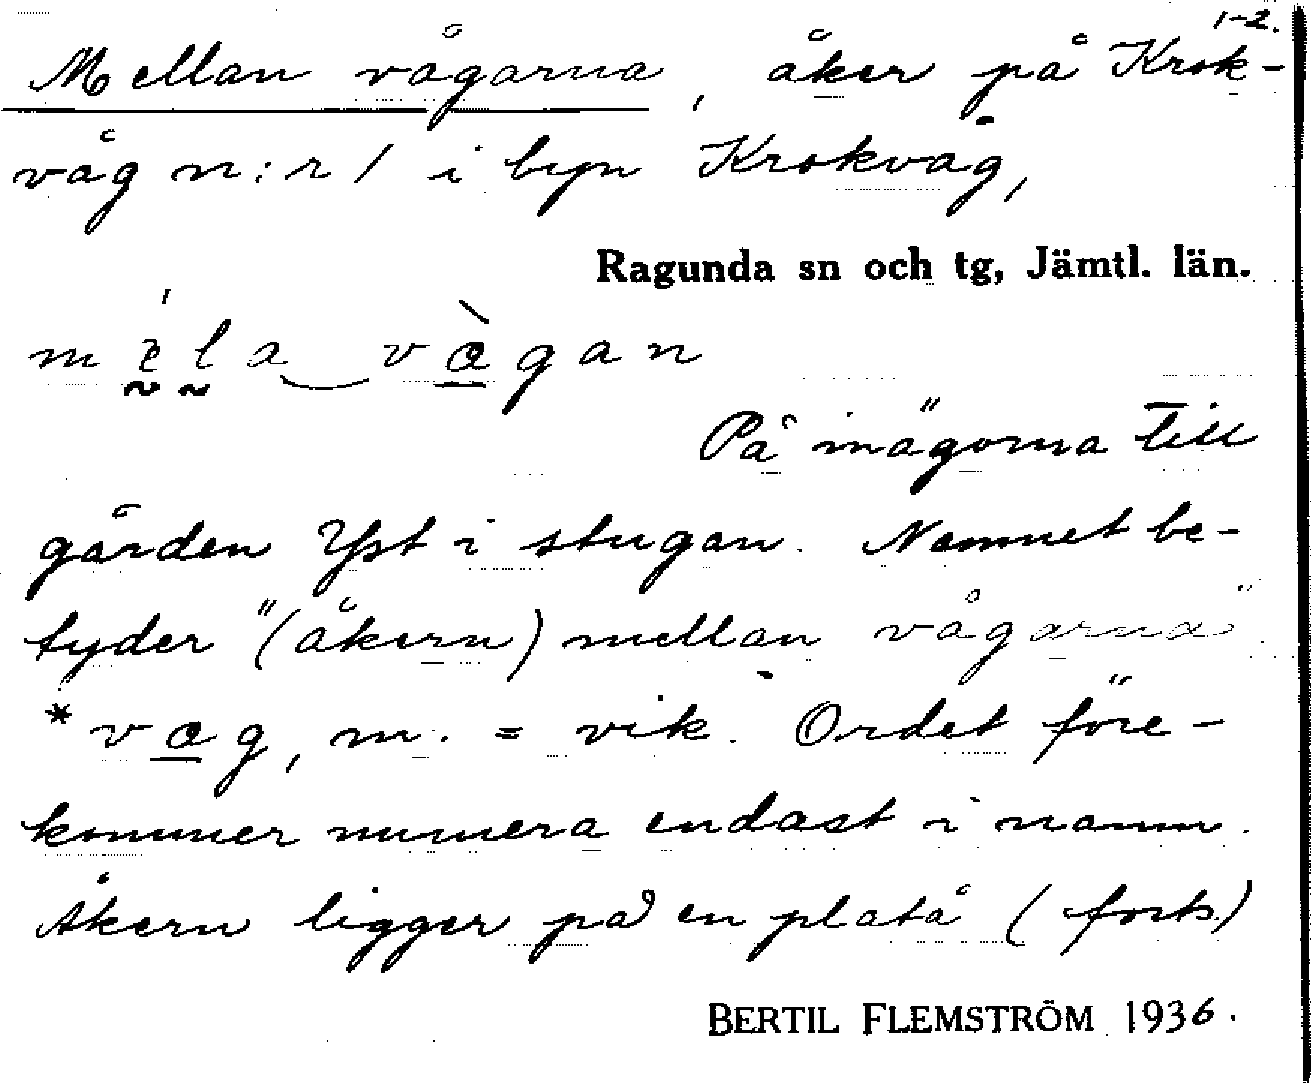 1-2.
Mellan vågarna, åker på Krok-
våg n:r 1 i byn Krokvåg,
Ragunda sn och tg, Jämtl. län.
mela vàgan
På inägorna till
gården Yst i stugan. Namnet be-
tyder "(åkern) mellan vågarna".
*vag, m. = vik. Ordet före-
kommer numera endast i namn.
Åkern ligger på en platå (forts.)
BERTIL FLEMSTRÖM 1936.